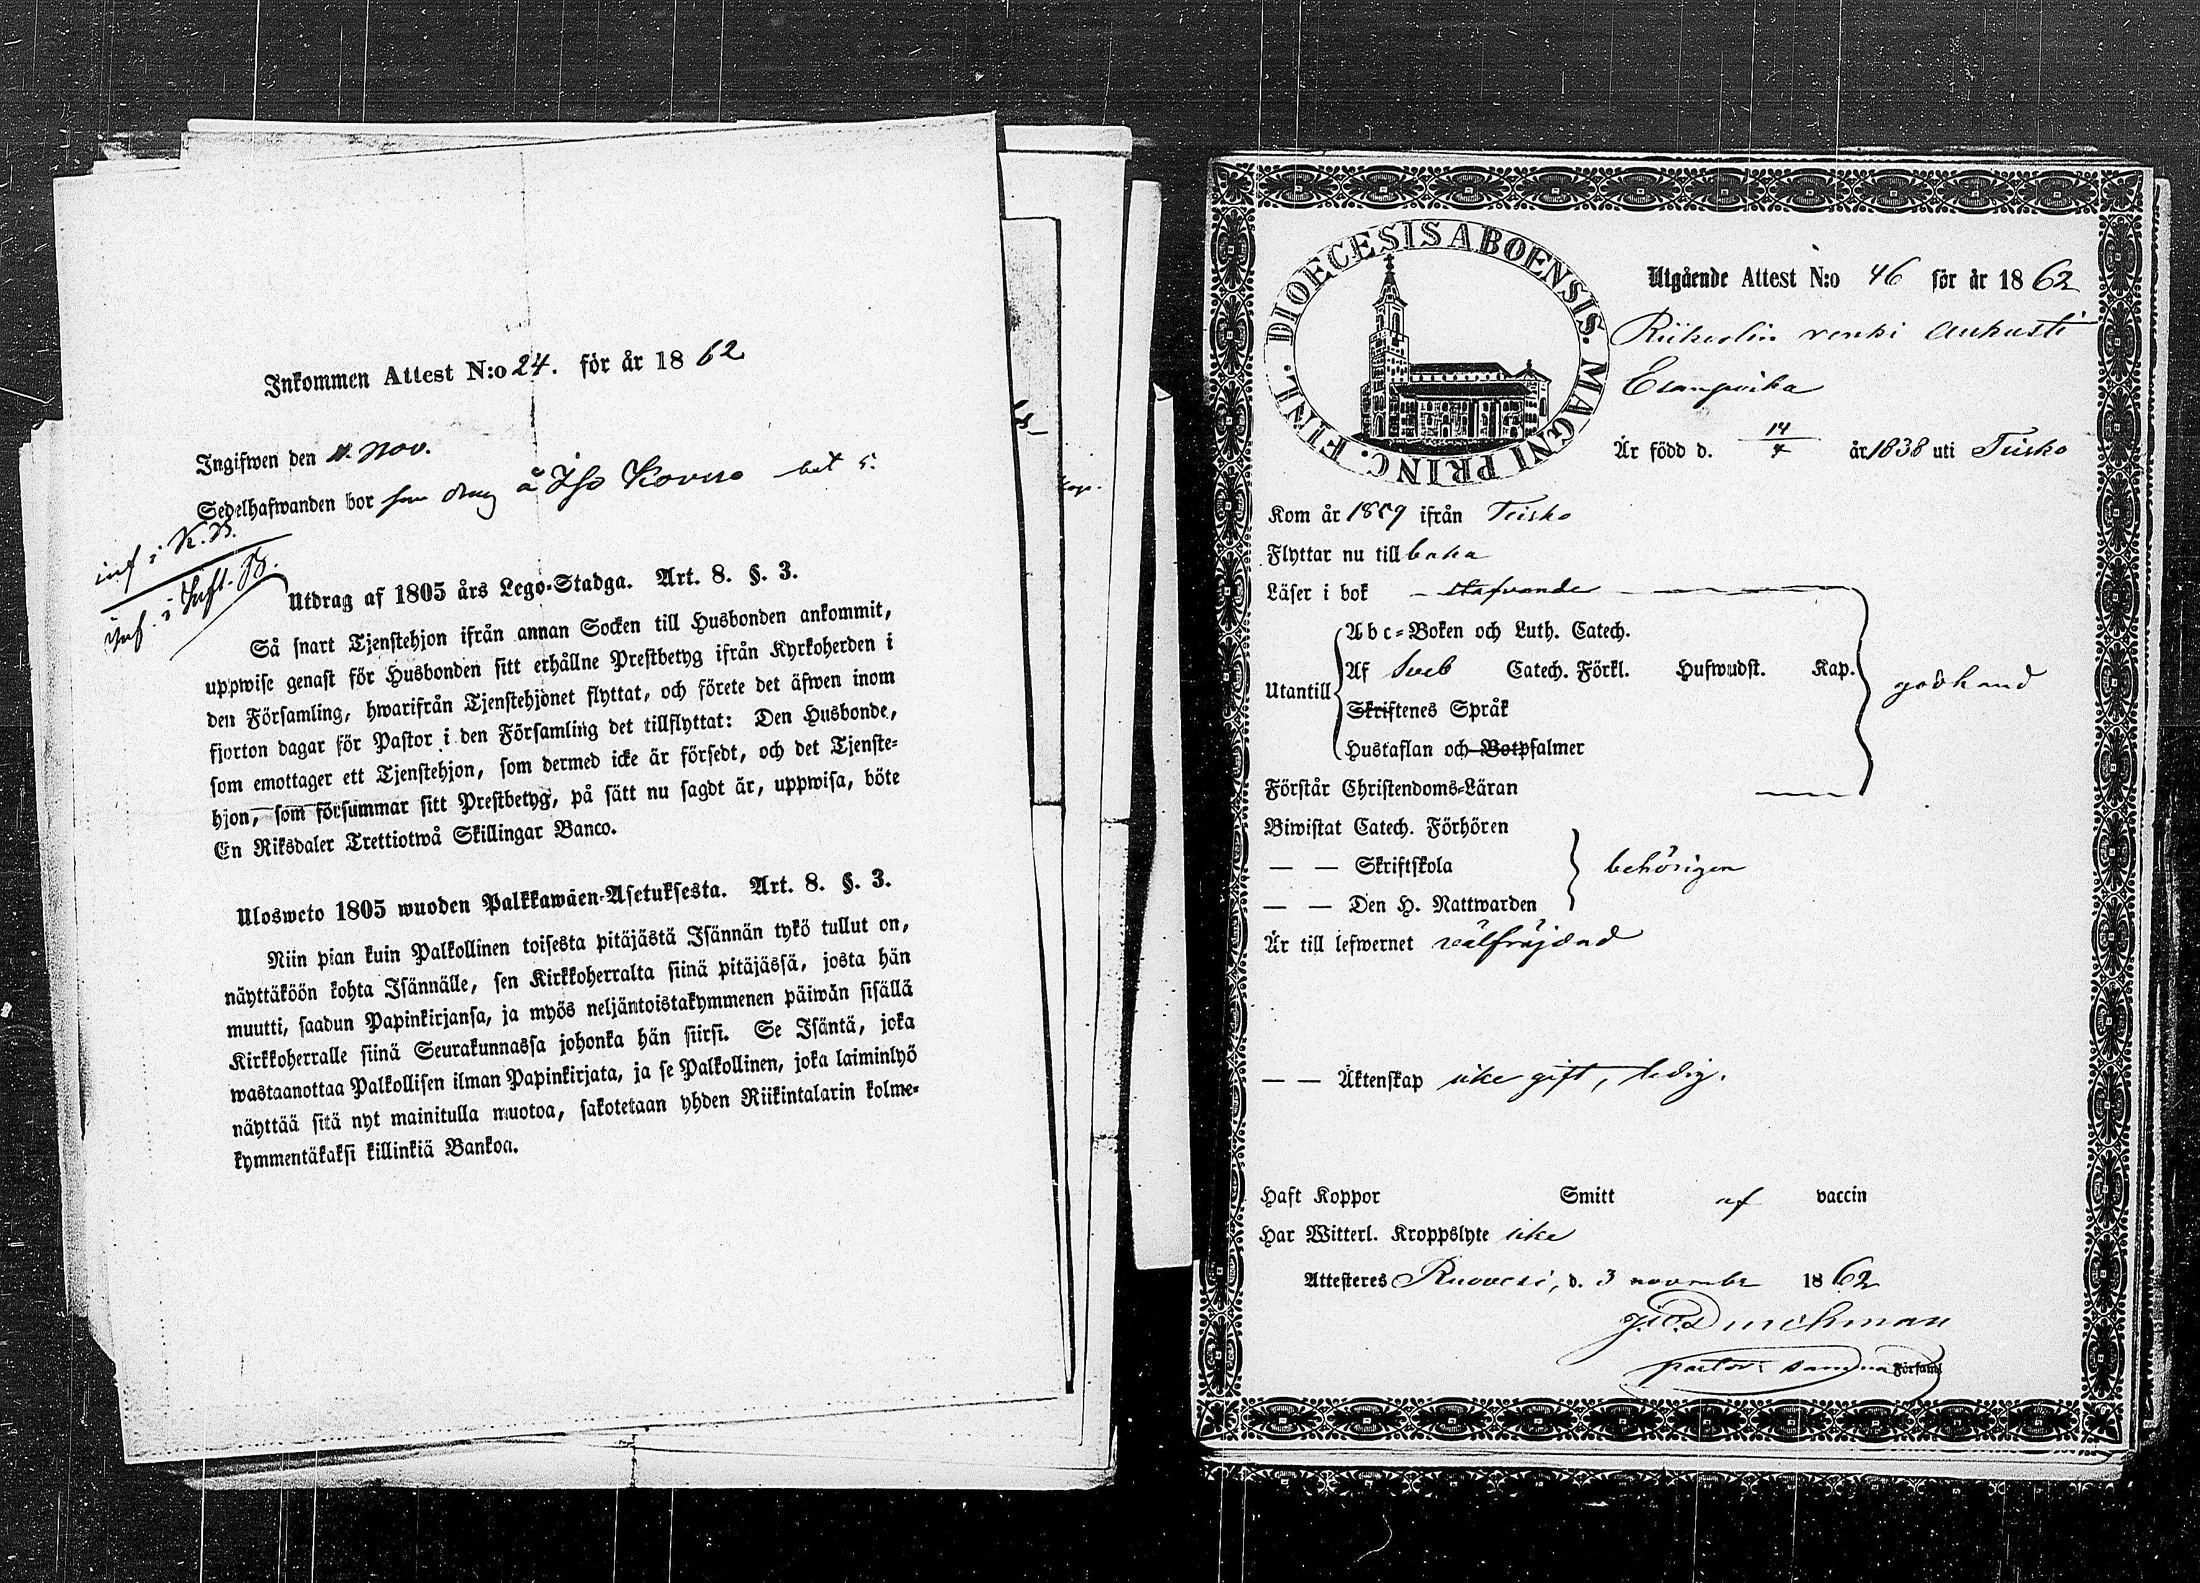 Inkommen Attest N:o 24. för år 1862
Ingifwen den 11. Nov.
Sedelhafwanden bor som dräng å Iso Kovero bet 5.
inf i K.B.
inf. i Infl. B.
Utdrag af 1805 års Lego-Stadga. Art. 8. §. 3.
Så snart Tjenstehjon ifrån annan Socken till Husbonden ankommit,
uppwise genast för Husbonden sitt erhållne Prestbetyg ifrån Kyrkoherden i
den Församling, hwarifrån Tjenstehjonet flyttat, och förete det äfwen inom
fjorton dagar för Pastor i den Församling det tillflyttat: Den Husbonde,
som emottager ett Tjenstehjon, som dermed icke är försedt, och det Tjenste-
hjon, som försummar sitt Prestbetyg, på sätt nu sagdt är, uppwisa, böte
En Riksdaler Trettiotwå Skillingar Banco.
Ulosweto 1805 wuoden Palkkawäen-Asetuksesta. Art. 8. §. 3.
Niin pian kuin Palkollinen toisesta pitäjästä Isännän tykö tullut on,
näyttäköön kohta Isännälle, sen Kirkkoherralta siinä pitäjässä, josta hän
muutti, saadun Papinkirjansa, ja myös neljäntoistakymmenen päiwän sisällä
Kirkkoherralle siinä Seurakunnassa johonka hän siirsi. Se Isäntä, joka
wastaanottaa Palkollisen ilman Papinkirjata, ja se Palkollinen, joka laiminlyö
näyttää sitä nyt mainitulla muotoa, sakotetaan yhden Riikintalarin kolme-
kymmentäkaksi killinkiä Bankoa.
DIOECESIS ABOENSIS. MAGNI PRINC. FINL.
Utgående Attest N:o 46 för år 1862
renki Aukusti
Är född d. 14/4 år 1838 uti Teisko
Kom år 1859 ifrån Teisko
Flyttar nu till baka
Läser i bok stafvande
Utantill
Abc-Boken och Luth. Catech.
Af Sveb Catech. Förkl. Hufwudst. Kap.
godkänd
Skriftenes Språk
Hustaflan och Botpsalmer
Förstår Christendoms-Läran
Biwistat Catech. Förhören
— — Skriftskola behörigen
— — Den H. Nattwarden
Är till lefwernet välfräjdad
— — Äktenskap icke gift, ledig.
Haft Koppor Smitt af vaccin
Har Witterl. Kroppslyte icke
Attesteres Ruovesi, d. 3 novembr 1862
pastor Församl